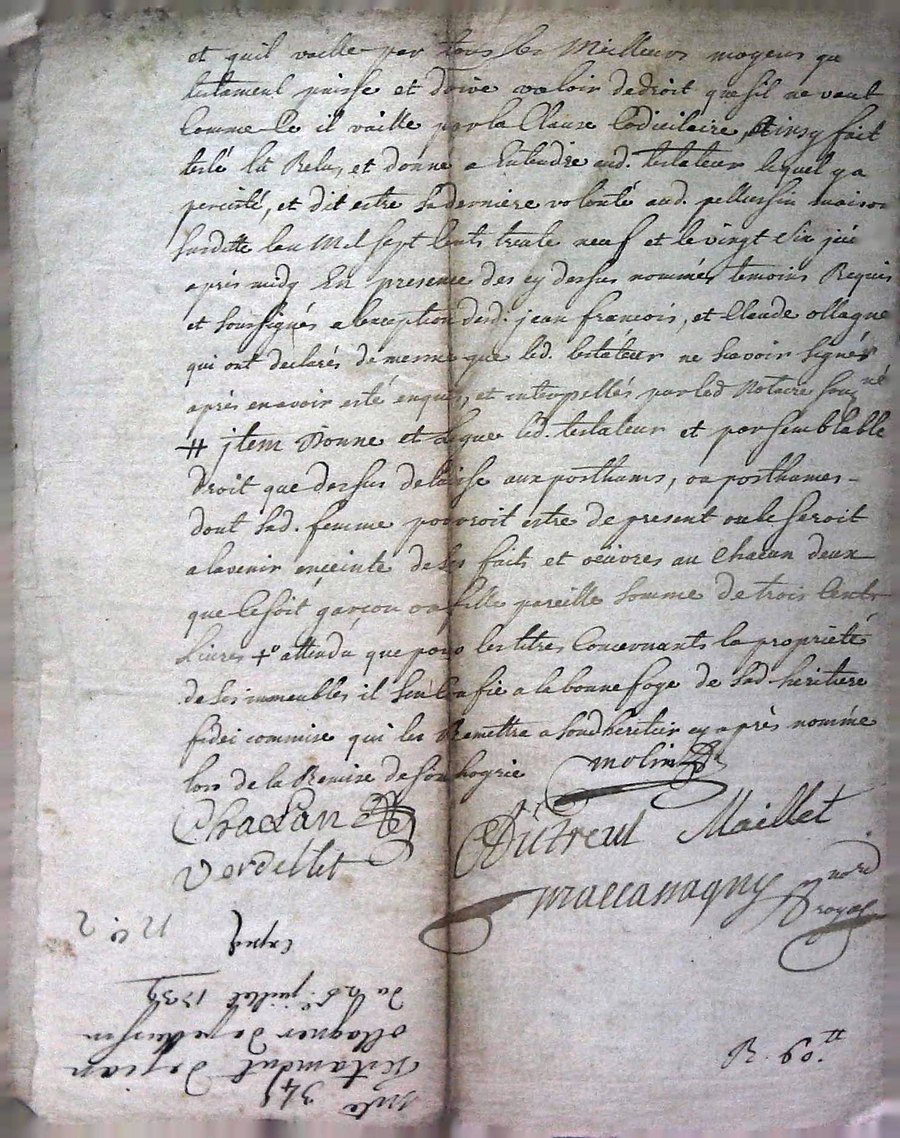 et quil vaille par tous les Meilleurs moyens que
testament puisse et doive valoir dedroit que sil ne vaut
Comme Ce il vaille par la Clause Codicilaire, Ainsy fait
testé lû Relu, et donné a Entendre aud. testateur lequel y a
percisté, et dit estre sa derniere volonté aud. pellussin maison
susditte lan Mil sept Cents trente neuf et le vingt six
après midy En presence des cy dessus nommés temoins Requis
et soussignés a lexception desd. jean francois, et Claude ollagne
qui ont declarés de mesme que led. testateur ne scavoir signer
après en avoir esté enquis, et interpellés par led Notaire souzné
# jtem Donne et Legue led. testateur et par semblable
droit que dessus delaisse aux posthums, ou posthumes
dont sad. femme pourroit estre de present ou le seroit
a lavenir enceinte de ses faits et oeuvres au Chacun deux
que ce soit garçon ou fille pareille somme de trois Cents
Livres +° attendu que pour les titres Concernants la proprieté
de ses immeubles il sen Confie a la bonne foye de sad heritiere
fidei commise qui les Remettra a sond heritier cy après nommée
lors de la Remise de son hoyrie
molin
Chaclan
Dutreul Maillet
Verdellet
maccanagny nore
royal
R. 60.tt
Cotte 345
testament de jean
ollagner de pellussin
du 26e. juillet 1739
Expd
No. 2